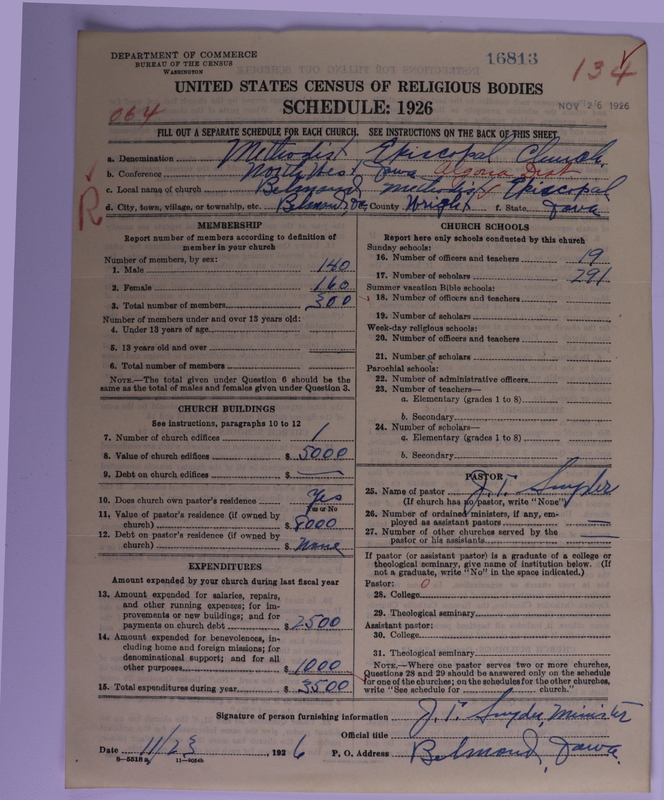 DEPARTMENT OF COMMERCE
BUREAU OF THE CENSUS
WASHINGTON
16813
134
UNITED STATES CENSUS OF RELIGIOUS BODIES
SCHEDULE: 1926
064
NOV 26 1926
FILL OUT A SEPARATE SCHEDULE FOR EACH CHURCH. SEE INSTRUCTIONS ON THE BACK OF THIS SHEET.
a. Denomination Methodist Episcopal Church.
b. Conference North West Iowa Algona Dist
c. Local name of church Belmond Methodist Episcopal
d. City, town, village, or township, etc. Belmond, Ia, County Wright f. State, Iowa
R
MEMBERSHIP
Report number of members according to definition of member in your church
Number of members, by sex:
1. Male 140
2. Female 160
3. Total number of members 300
Number of members under and over 13 years old:
4. Under 13 years of age
5. 13 years old and over
6. Total number of members
NOTE.—The total given under Question 6 should be the same as the total of males and females given under Question 3.
CHURCH BUILDINGS
See instructions, paragraphs 10 to 12
7. Number of church edifices 1
8. Value of church edifices $ 5000
9. Debt on church edifices $ —
10. Does church own pastor's residence Yes
Yes or No
11. Value of pastor's residence (if owned by church) $ 8000
12. Debt on pastor's residence (if owned by church) $ None
EXPENDITURES
Amount expended by your church during last fiscal year
13. Amount expended for salaries, repairs, and other running expenses; for improvements or new buildings; and for payments on church debt $ 2500
14. Amount expended for benevolences, including home and foreign missions; for denominational support; and for all other purposes $ 1000
15. Total expenditures during year $ 3500
CHURCH SCHOOLS
Report here only schools conducted by this church
Sunday schools:
16. Number of officers and teachers 19
17. Number of scholars 291
Summer vacation Bible schools:
18. Number of officers and teachers
19. Number of scholars
Week-day religious schools:
20. Number of officers and teachers
21. Number of scholars
Parochial schools:
22. Number of administrative officers
23. Number of teachers—
a. Elementary (grades 1 to 8)
b. Secondary
24. Number of scholars—
a. Elementary (grades 1 to 8)
b. Secondary
PASTOR
25. Name of pastor J. T. Snyder
(If church has no pastor, write "None")
26. Number of ordained ministers, if any, employed as assistant pastors —
27. Number of other churches served by the pastor or his assistants —
If pastor (or assistant pastor) is a graduate of a college or theological seminary, give name of institution below. (If not a graduate, write "No" in the space indicated.)
Pastor: 0
28. College
29. Theological seminary
Assistant pastor:
30. College
31. Theological seminary
NOTE.—Where one pastor serves two or more churches, Questions 28 and 29 should be answered only on the schedule for one of the churches; on the schedules for the other churches, write "See schedule for church."
Signature of person furnishing information J. T. Snyder, Minister
Official title
Date 11/23, 1926 P. O. Address Belmond, Iowa.
8-5518a 11-9064b